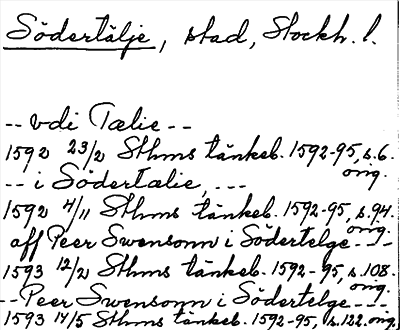 Södertälje, stad, Stockh. l.
-- vdi Tælie --
1592 23/2 Sthms tänkeb. 1592-95, s. 6.
orig.
-- i Södertælie, ---
1592 4/11 Sthms tänkeb. 1592-95, s. 94.
orig.
aff Peer Swensonn i Södertelge ---
1593 12/2 Sthms tänkeb. 1592-95, s. 108.
orig.
-- Peer Swensonn i Södertelge ---
1593 14/5 Sthms tänkeb. 1592-95, s. 122. orig.